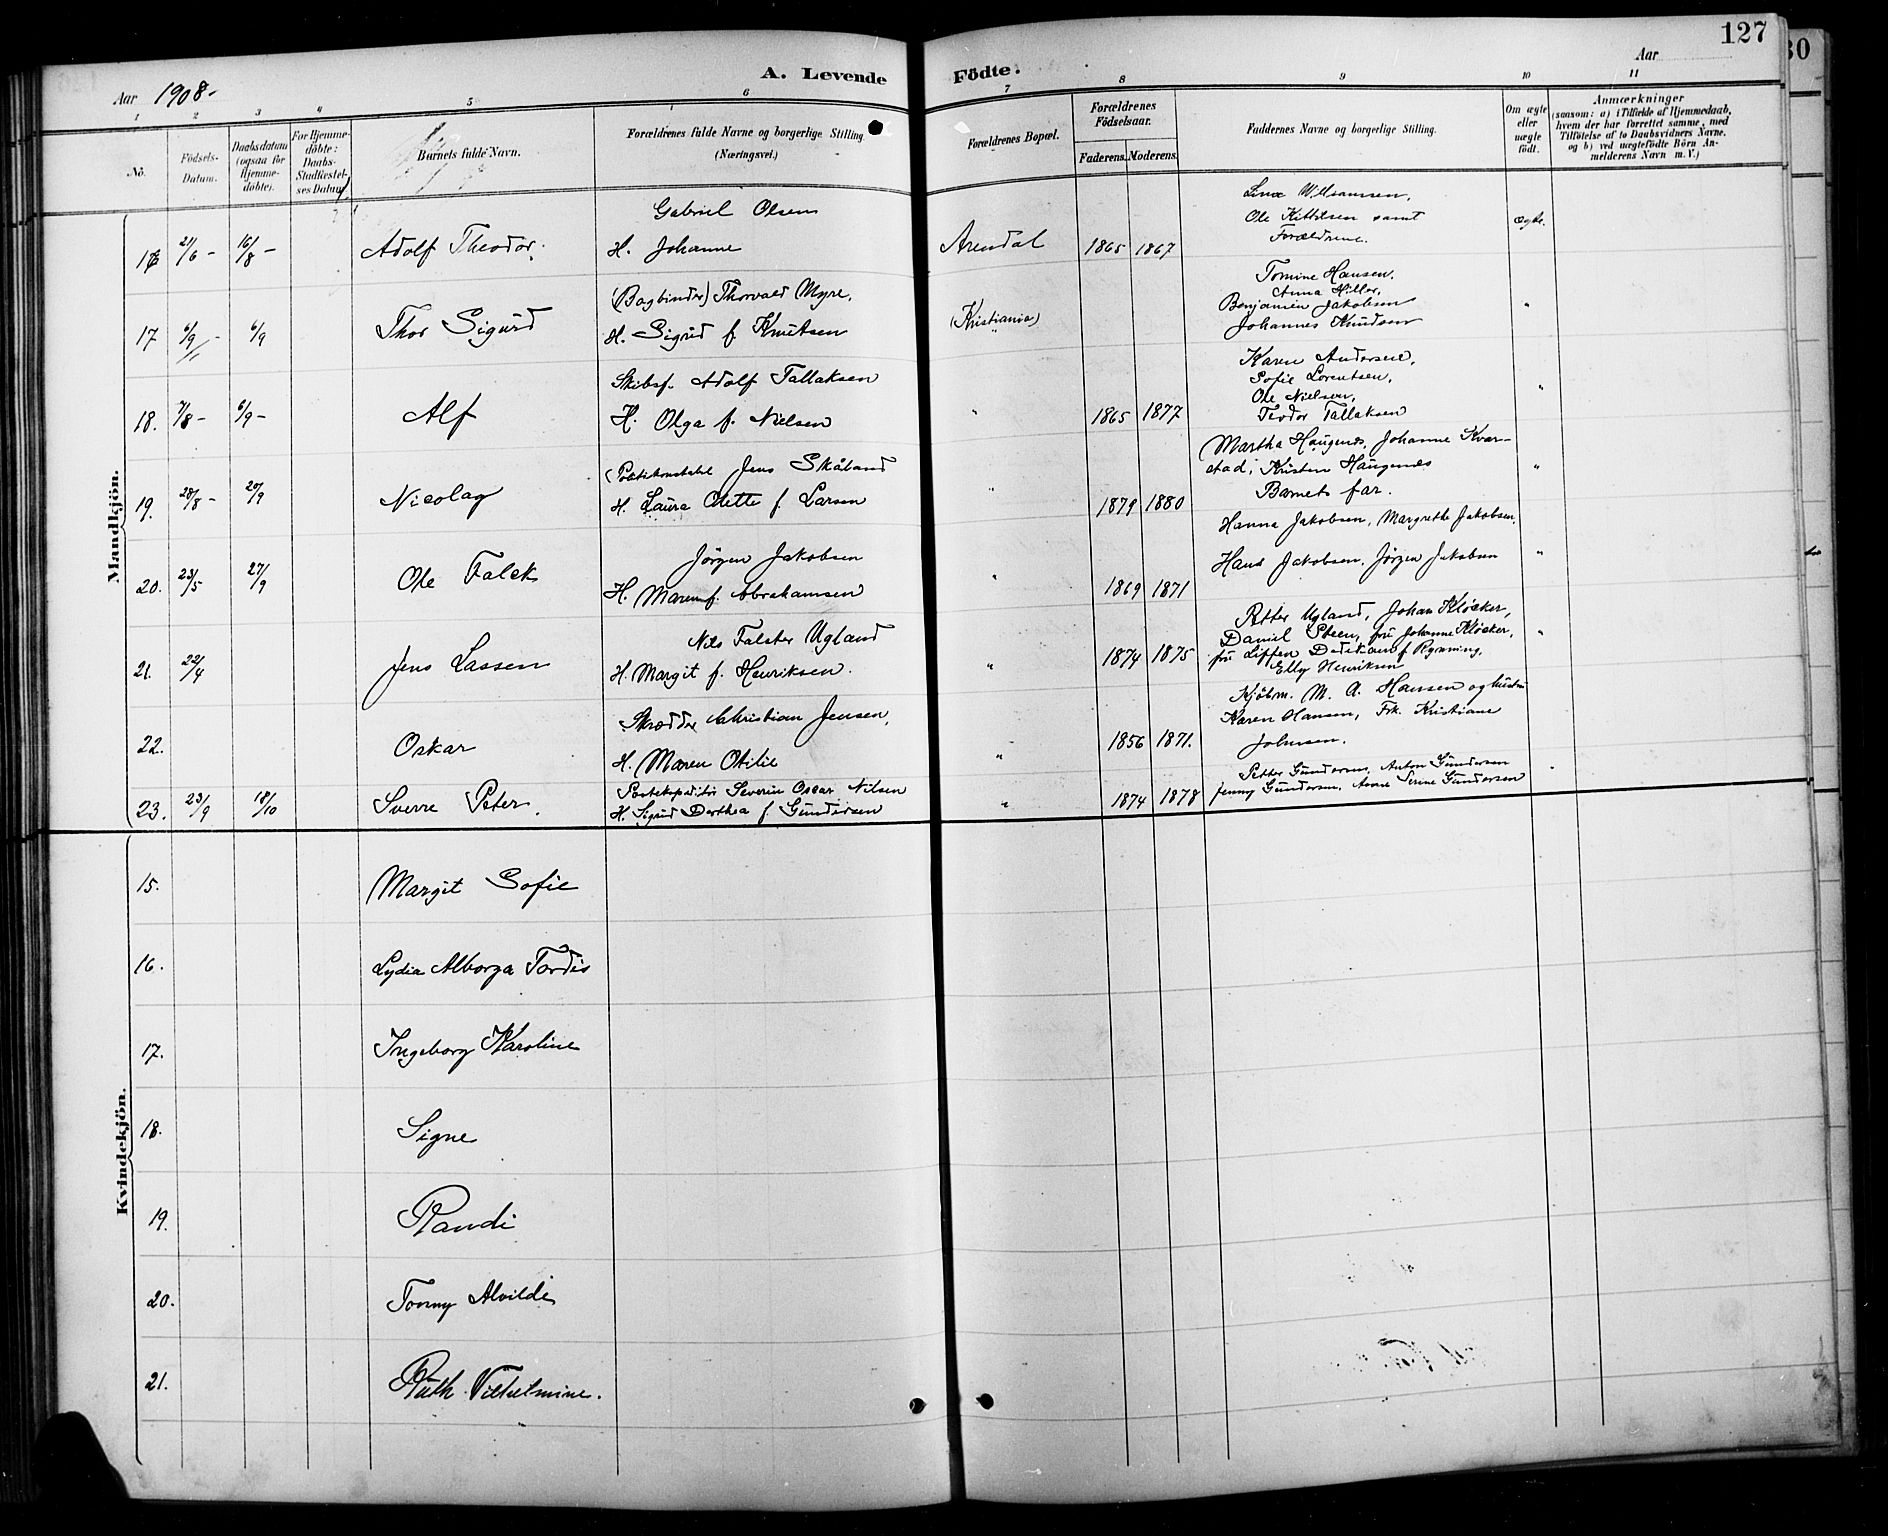 127
30
A. Levende Födte.
Aar 1908.
Aar
1 2 3 4 5 6 7 8 9 10 11
No.
Födsels-Datum.
Daabsdatum (ogsaa for Hjemme-döbte).
For Hjemme-döbte: Daabs-Stadfæstel-ses Datum.
Barnets fulde Navn.
Forældrenes fulde Navne og borgerlige Stilling (Næringsvei.)
Forældrenes Bopæl.
Forældrenes Födselsaar.
Faderens. Moderens.
Faddernes Navne og borgerlige Stilling.
Om ægte eller uægte födt.
Anmærkninger
(saasom: a) i Tilfælde af Hjemmedaab,
hvem der har forrettet samme, med
Tilföielse af to Daabsvidners Navne.
og b) ved uægtefödte Börn An-
melderens Navn m. V.)
Mandkjön.
16 21/6 - 16/8 - Adolf Theodor. Gabriel Olsen
H. Johanne
Arendal 1865 1867
Line Williamsen,
Ole Kittelsen samt
Forældrene.
Ægte.
17 6/9 - 6/9 Thor Sigurd (Bogbinder) Thorvald Myre,
H. Sigrid f. Knutsen
(Kristiania)
Tomine Hansen,
Anna Hiller,
Benjamin Jakobsen
Johannes Knudsen
"
18. 7/8 - 6/9 - Alf Skibsf. Adolf Tallaksen
H. Olga f. Nielsen
" 1865 1877
Karen Andersen,
Sofie Lorentsen,
Ole Nielsen,
Teodor Tallaksen
"
19. 28/8 - 20/9 Nicolay Jens Skåland
H. Laura Odette f. Larsen
" 1879 1880
Martha Haugenes, Johanne Kver-
stad, Kristen Haugenes
Barnets far.
"
20. 23/5 27/9 Ole Falck Jørgen Jakobsen
H. Maren f. Abrahamsen
" 1869 1871
Hanna Jakobsen, Margrethe Jakobsen,
Hans Jakobsen, Jørgen Jakobsen
"
21. 22/4 Jens Lassen Nils Falster Ugland
H. Margit f. Henriksen.
" 1874 1875
Petter Ugland, Johan Kløcker,
Daniel Steen, fru Johanne Kløcker,
fru f. Ryning,
Elly Henriksen
"
22. Oskar Skrædder Christian Jensen,
H. Maren Otilie
" 1856 1871.
Kjøbm. M. A. Hansen og hustru
Karen Hansen, Frk. Kristiane
Johnsen.
23. 23/9 18/10 Sverre Peter. Postekspeditør Severin Oscar Nilsen
H. Sigrid Dorthea f. Gundersen
" 1874 1878
Petter Gundersen, Anton Gundersen
Jenny Gundersen, Anne Serine Gundersen
Kvindekjön.
15. Margit Sofie
16. Lydia Alborga Tordis
17. Ingeborg Karoline
18. Signe
19. Randi
20. Tonny Alvilde
21. Ruth Vilhelmine.